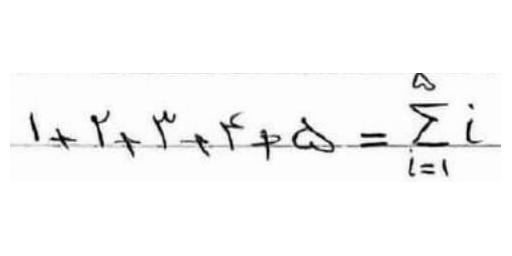 ۱+۲+۳+۴+۵ = \sum_{i=۱}^{۵} i